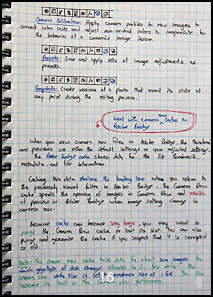 Camera Calibration: Apply camera profiles to raw images to
correct color casts and adjust non-neutral colors to compensate for
the behavior of a camera's image sensor
Presets: Save and apply sets of image adjustments as
presets
Snapshots: Create versions of a photo that record its state at
any point during the editing process.
Work with Camera Raw Cache in
Adobe Bridge
When you view camera raw files in Adobe Bridge, the thumbnails
and previews use either the default settings or your adjusted settings.
The Adobe Bridge cache stores data for the file thumbnails,
metadata, and file information.
Caching this data shortens the loading time when you return to the
previously viewed folder in Adobe Bridge. The Camera Raw
cache speeds the opening of images in Camera Raw and rebuilds
of previews in Adobe Bridge when image settings change in
camera raw.
Because caches can become very large, you may want to
purge the Camera Raw cache or limit its size. You can also
purge and regenerate the cache if you suspect that it is corrupted
or old.
Note: The camera raw cache holds data for about 200 images for
each gigabyte of disk storage
16